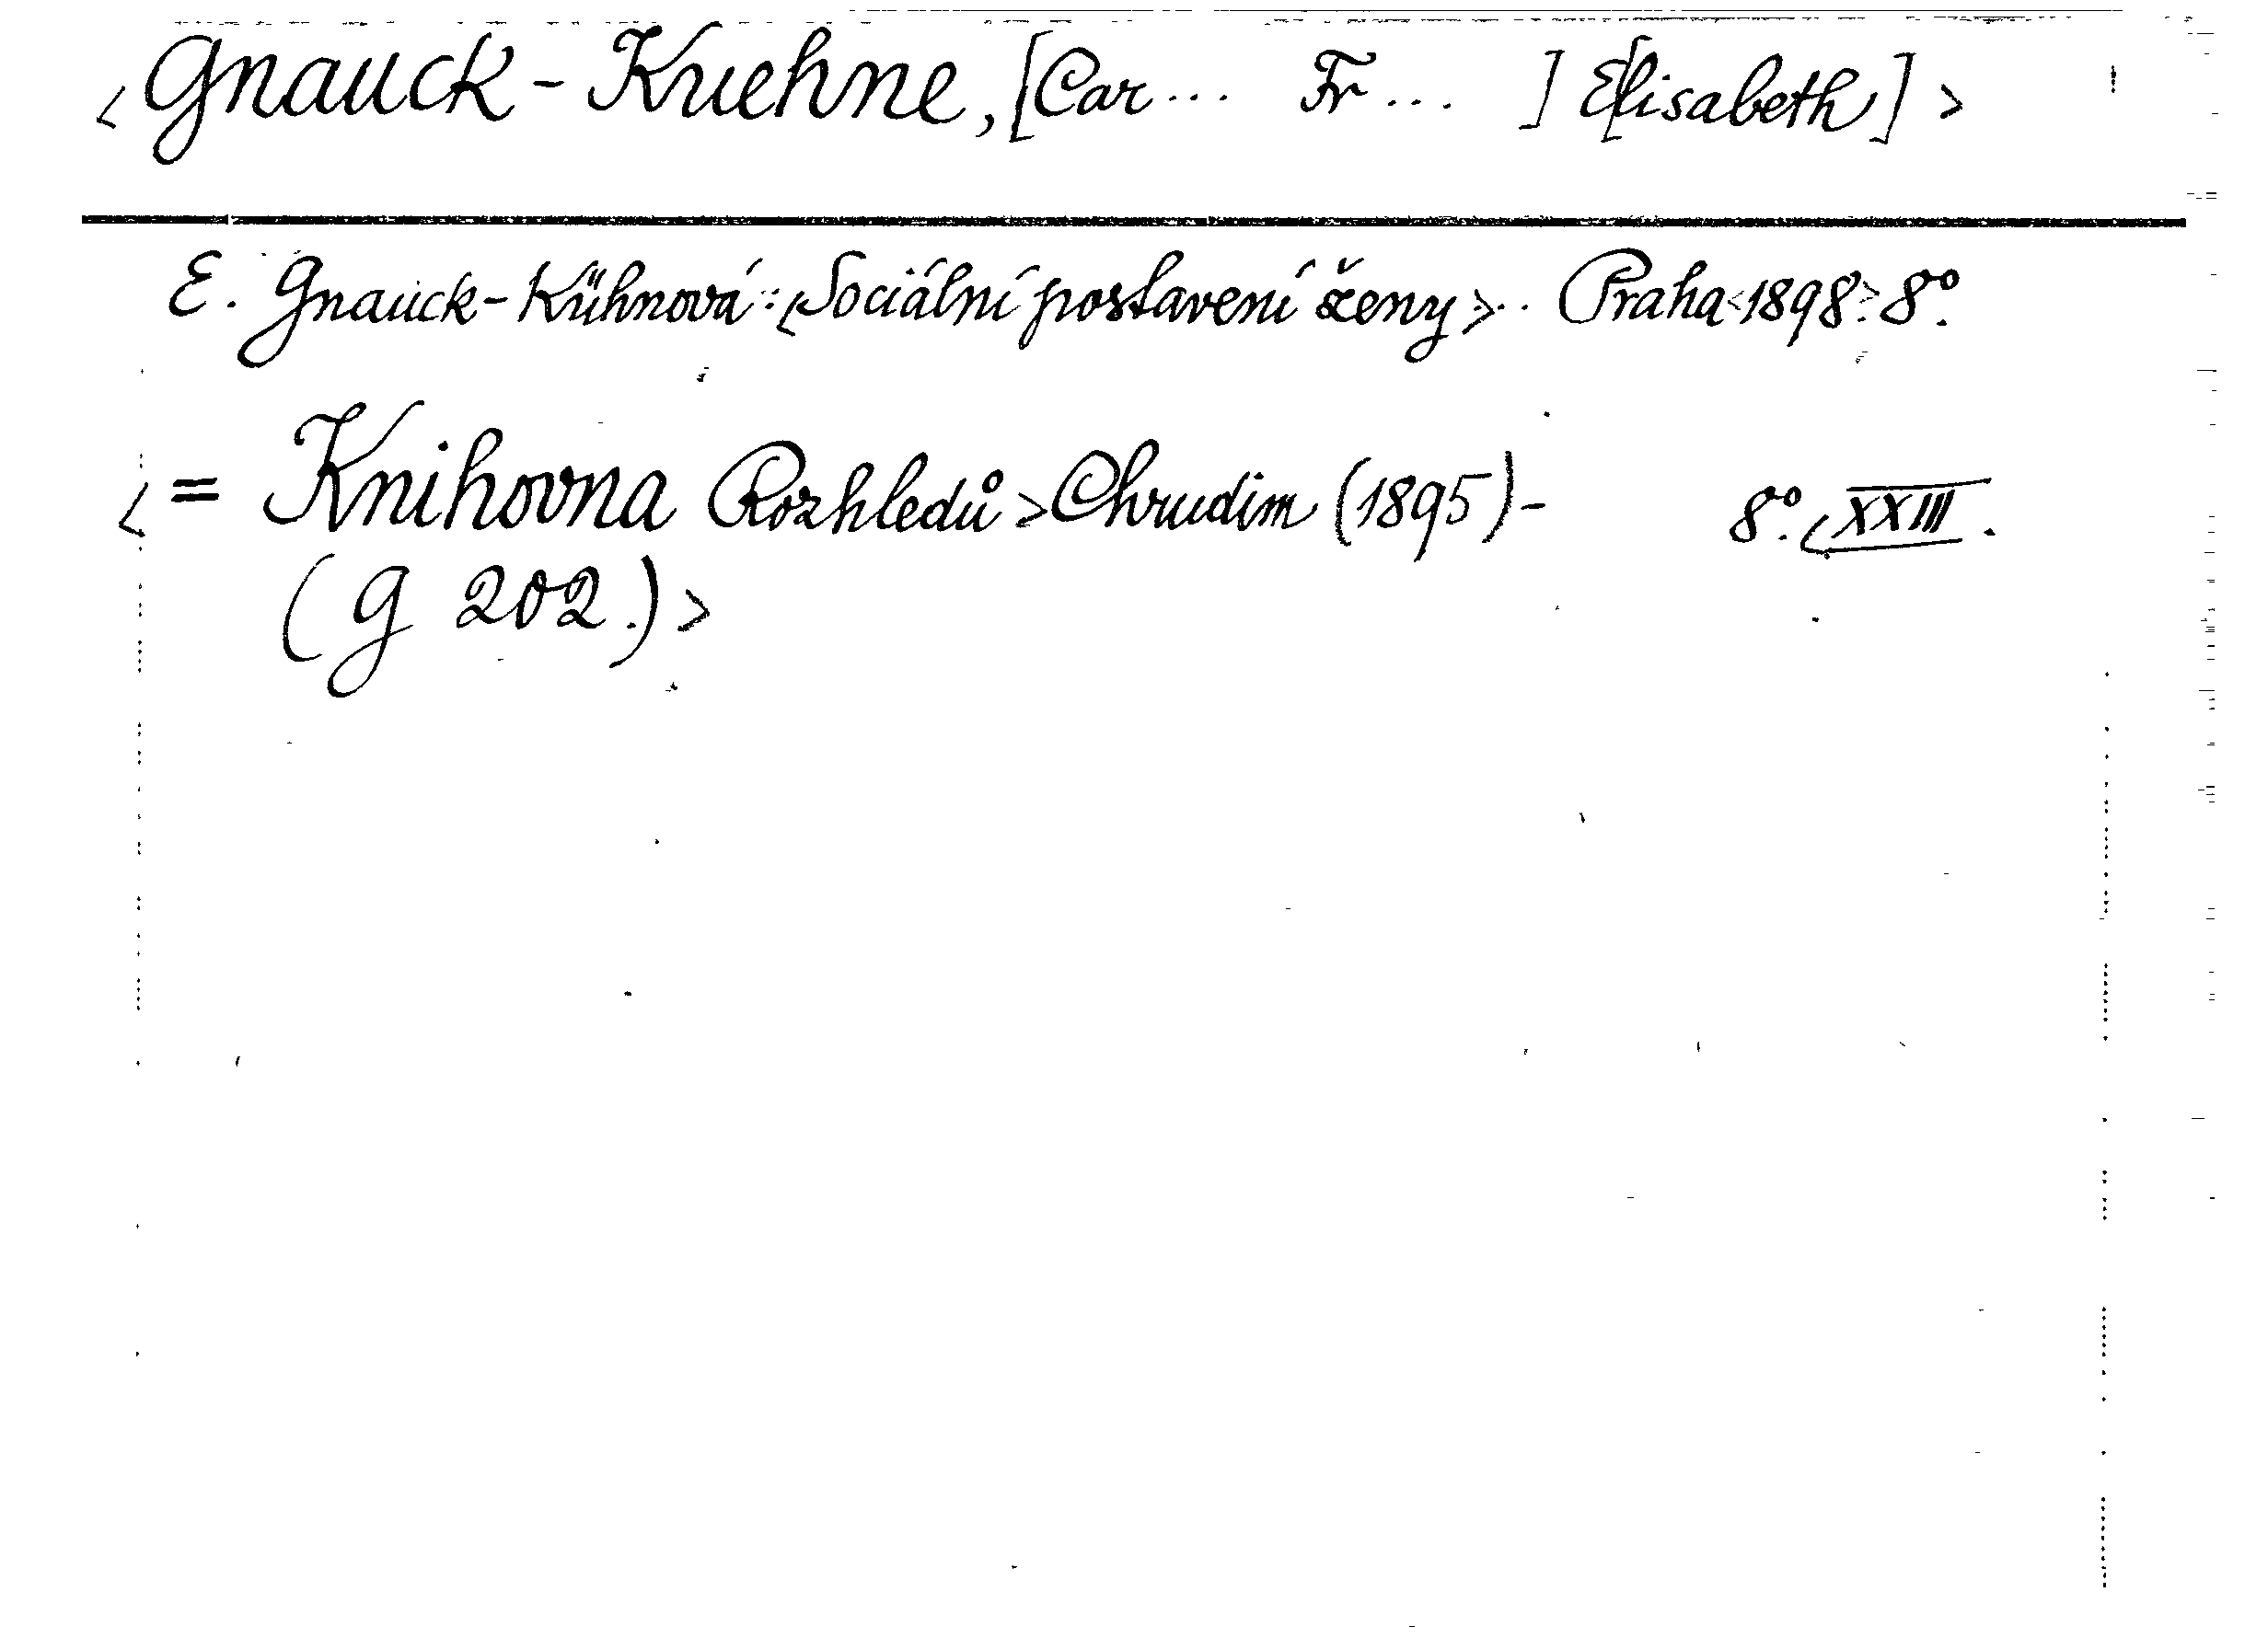 <Gnauck-Kuehne, [Car... Fr... ] E[lisabeth]>
E. Gnauck-Kühnová: <Sociální postavení ženy>.. Praha <1898> 8º.
<= Knihovna Rozhledů> Chrudim (1895)- 8º. <XXIII.
(g 202.)>